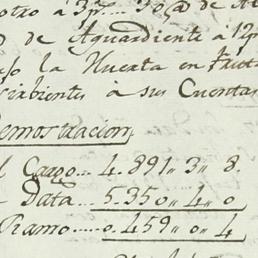 otro á 3p.... 30,, @ de A
@ de Aguardiente á 12p
so la Huerta en frut
sirbientes a sus Cuentas
Demostracion
l Cargo... 4.891,, 3,, 8.
Data... 5.350,, 4,, 0
Ramo..... 0.459,, 0,, 4